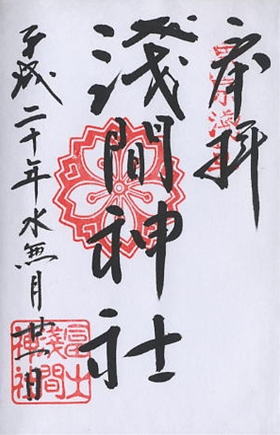 奉拝
淺間神社
平成二十年水無月丗日
冨士
淺間
神社